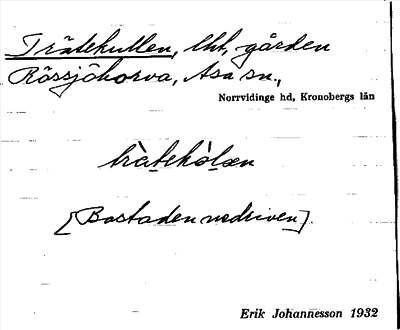 Trätekullen, lht, gården
Rössjöhorva, Asa sn.,
Norrvidinge hd, Kronobergs län
trätekùlen
[Bostaden nedriven].
Erik Johannesson 1932